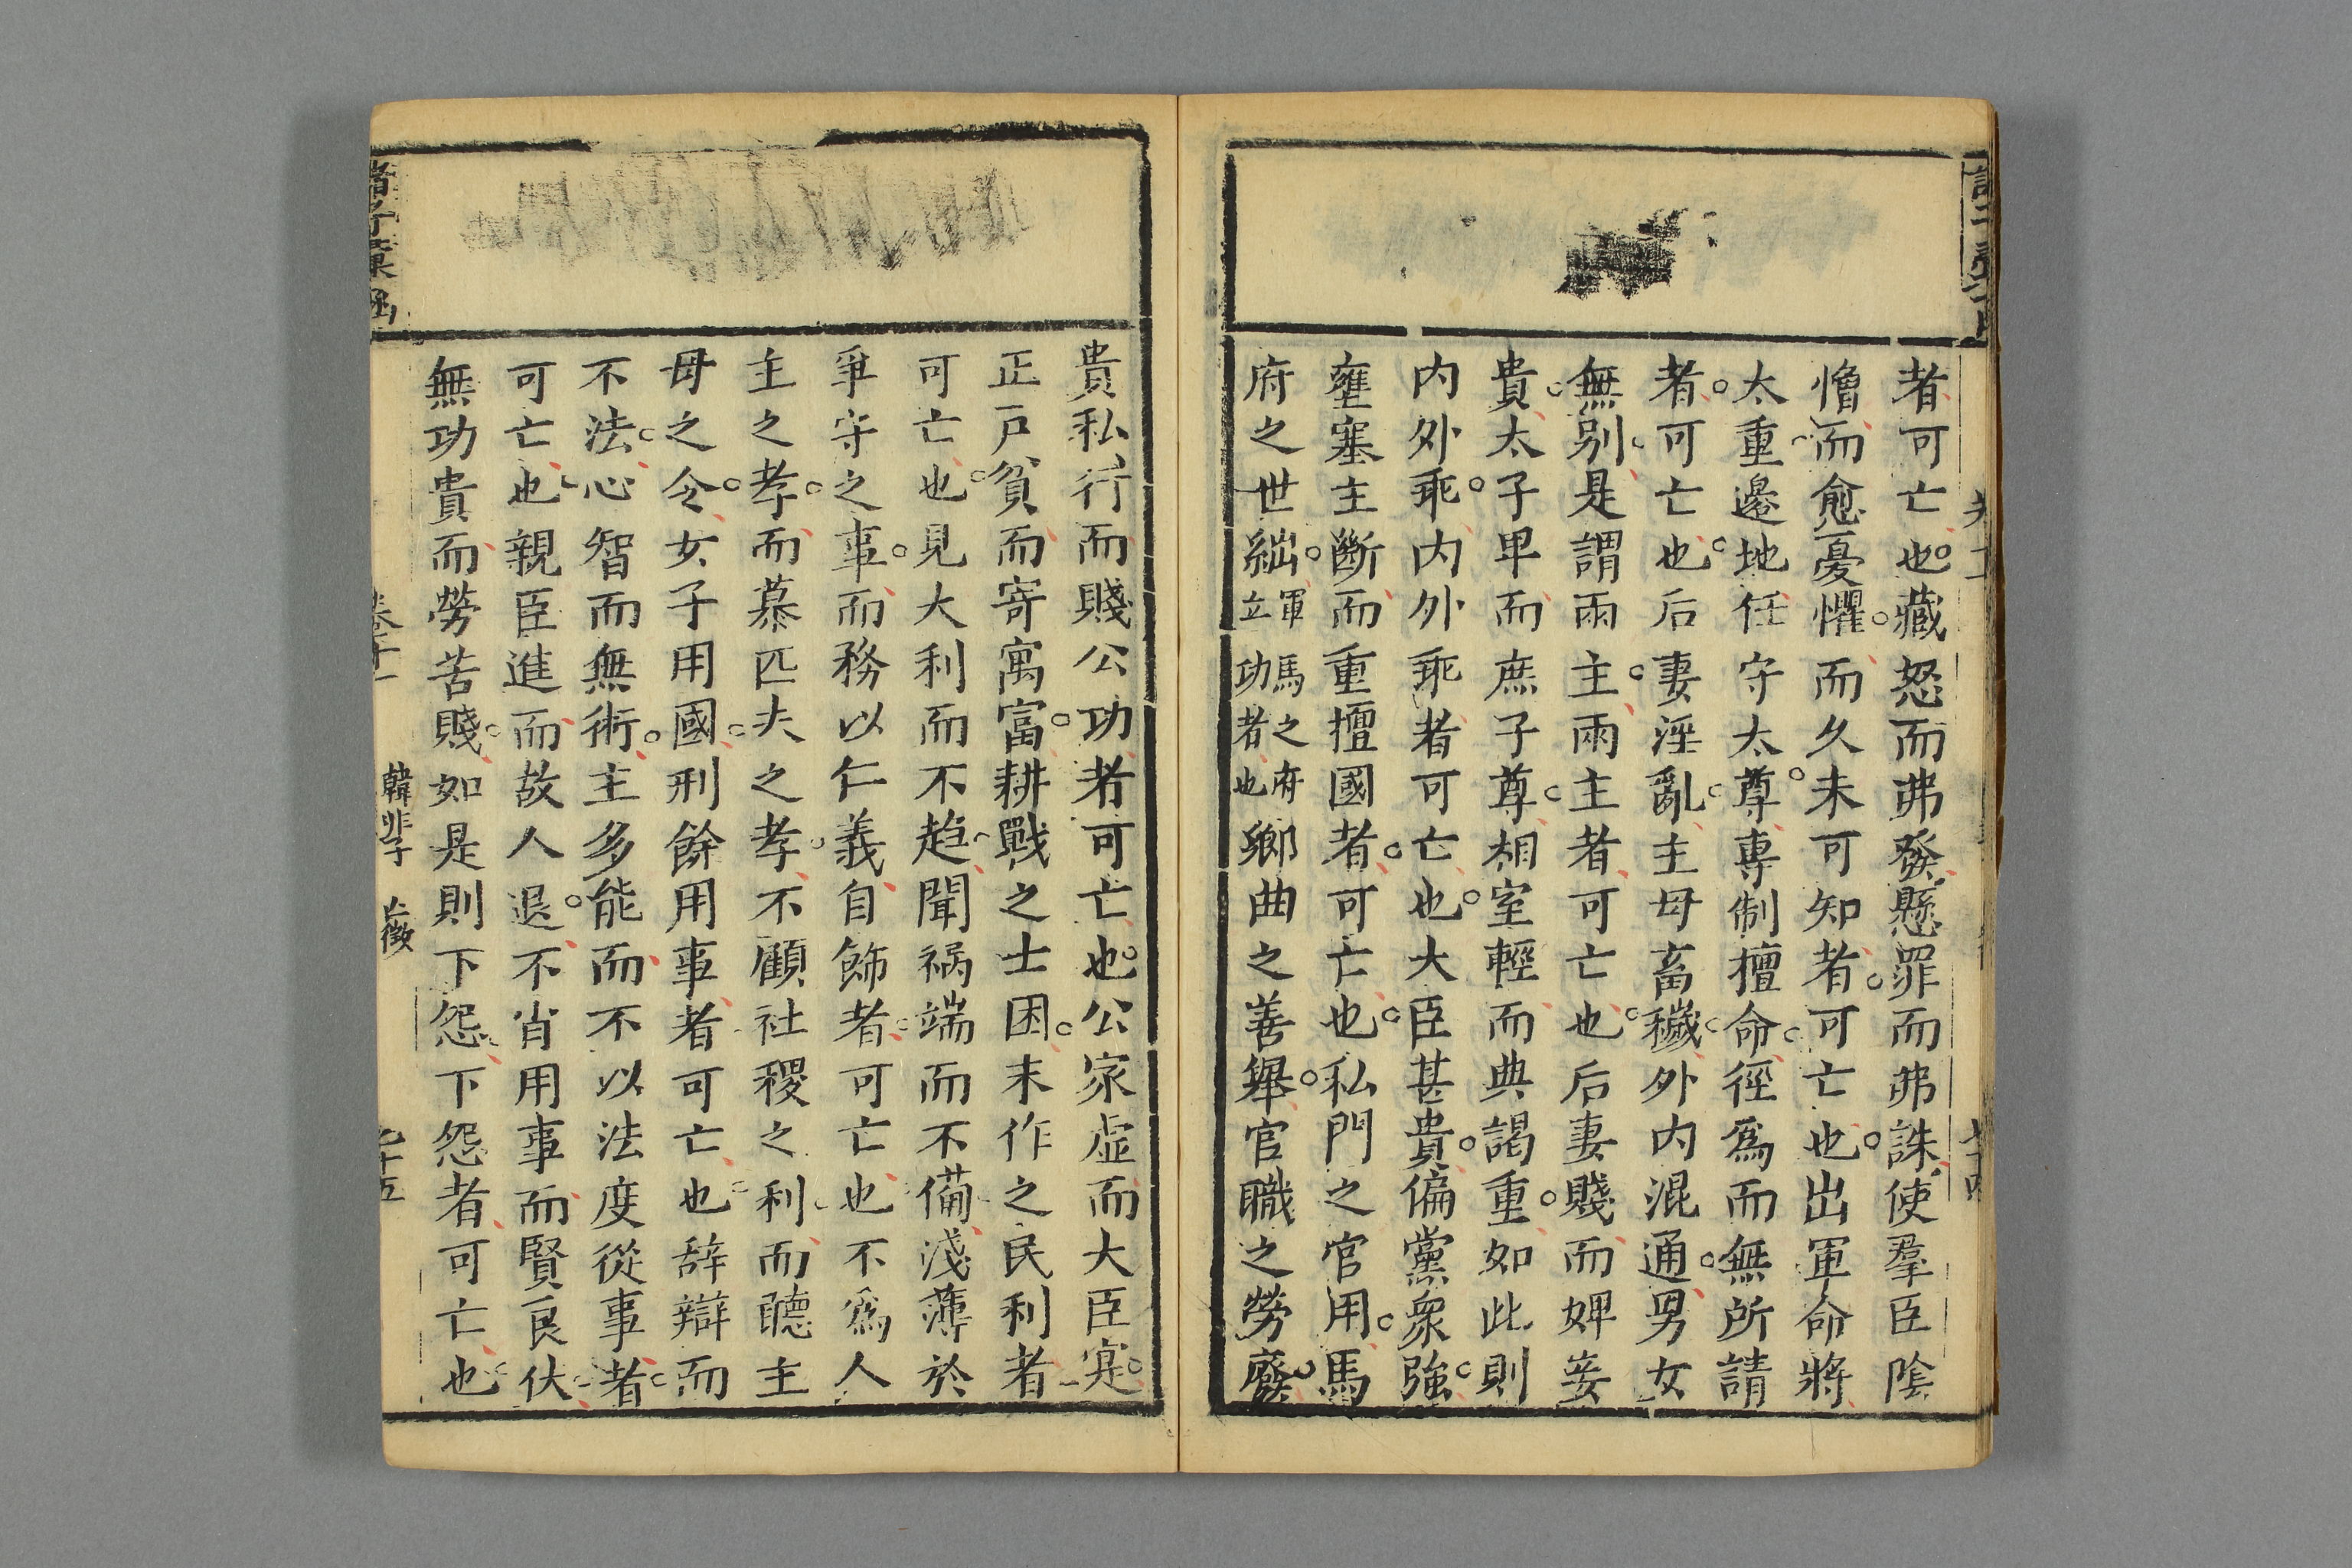 者可亡也藏怒而弗發懸罪而弗誅使羣臣陰
憎而愈憂懼而久未可知者可亡也出軍命將
太重邊地任守太尊專制擅命徑爲而無所請
者可亡也后妻淫亂主母畜穢外内混通男女
無别是謂兩主兩主者可亡也后妻賤而婢妾
貴太子卑而庶子尊相室輕而典謁重如此則
内外乖内外乖者可亡也大臣甚貴偏黨衆強
壅塞主斷而重擅國者可亡也私門之官用馬
府之世絀軍馬之府立功者也鄉曲之善舉官職之勞廢
貴私行而賤公功者可亡也公家虛而大臣寔
正户貧而寄寓富耕戰之士困末作之民利者
可亡也見大利而不趋聞禍端而不備淺薄於
爭守之事而務以仁義自飾者可亡也不爲人
主之孝而慕匹夫之孝不顧社稷之利而聽主
母之令女子用國刑餘用事者可亡也辞辯而
不法心智而無術主多能而不以法度從事者
可亡也親臣進而故人退不肖用事而賢良伏
無功貴而勞苦賤如是則下怨下怨者可亡也
諸子彙函
卷十一
韓非子
亡徵
七十五